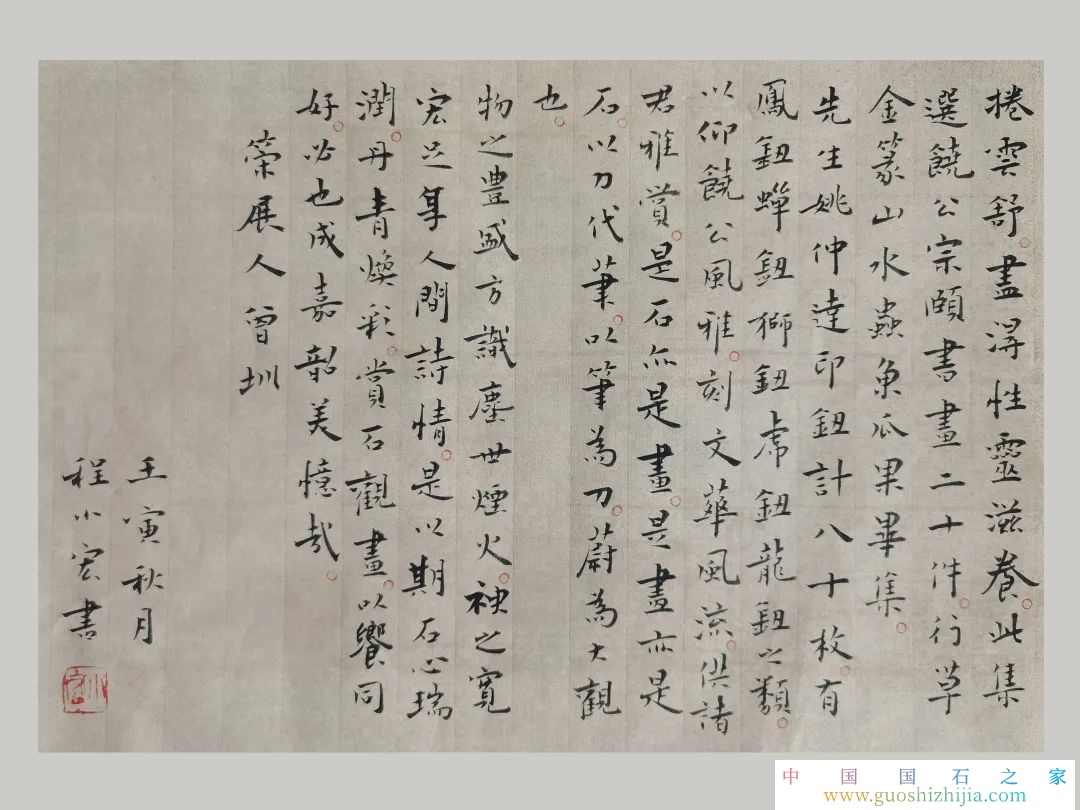 捲雲舒盡淂性靈滋養此集
選饒公宗頤書畫二十件行草
金篆山水蟲魚瓜果畢集
先生姚仲達印鈕計八十枚有
鳳鈕蟬鈕獅鈕虎鈕龍鈕之類
以仰饒公風雅刻文華風流供諸
君雅賞是石亦是畫是畫亦是
石以刀代筆以筆為刀蔚為大觀
也
物之豊盛方識塵世煙火
之寬
宏足 人間詩情是以期石心瑞
潤丹青煥彩賞石觀畫以饗同
好必也成嘉韶美憶哉
策展人曾圳
壬寅秋月
程小宏書
中国国石之家
www.guoshizhijia.com